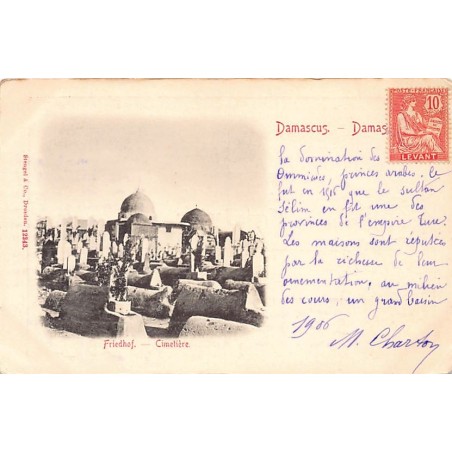 Damascus. — Damas
POSTE FRANÇAISE
10
LEVANT
la domination des
Ommiades, princes arabes. Ce
fut en 1516 que le sultan
Sélim en fit une des
provinces de l'empire turc.
Les maisons sont réputées
par la richesse de leur
ornementation, au milieu
des cours, un grand bassin
1906
M. Charton
Stengel & Co., Dresden. 12543.
Friedhof. — Cimetière.